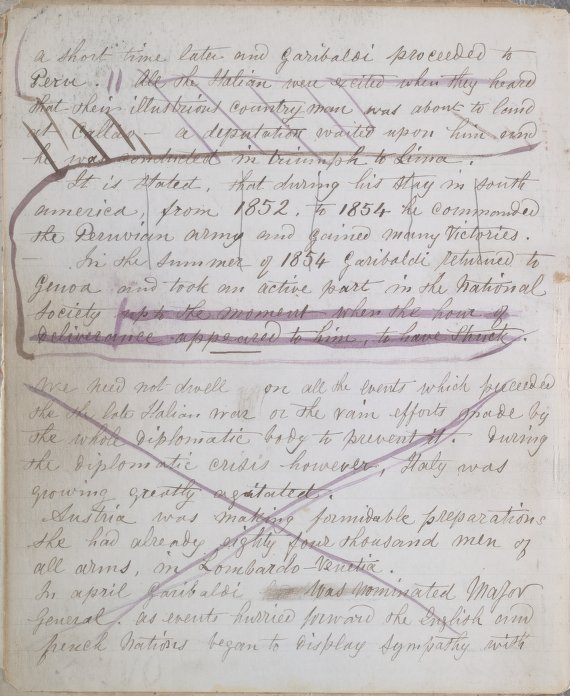 a short time later and Garibaldi proceeded to
Peru. || All the Italian were excited when they heard
that their illustrious countryman was about to land
at Callao - a deputation waited upon him and
he was conducted in triumph to Lima.
It is stated, that during his stay in South
america, from 1852, to 1854 he commanded
the Peruvian army and gained many Victories.
- In the summer of 1854 Garibaldi returned to
Genoa and took an active part in the National
Society upto the moment when the hour of
deliverance appeared to him, to have Struck.
We need not dwell on all the events which preceeded
the the late Italian war or the vain efforts made by
the whole Diplomatic body to prevent it. During
the diplomatic crisis however, Italy was
growing greatly agitated.
Austria was making formidable preparations
She had already eighty four thousand men of
all arms, in Lombardo-Venetia.
In april Garibaldi was nominated Major
General. as events hurried forward the English and
french Nations began to display sympathy with